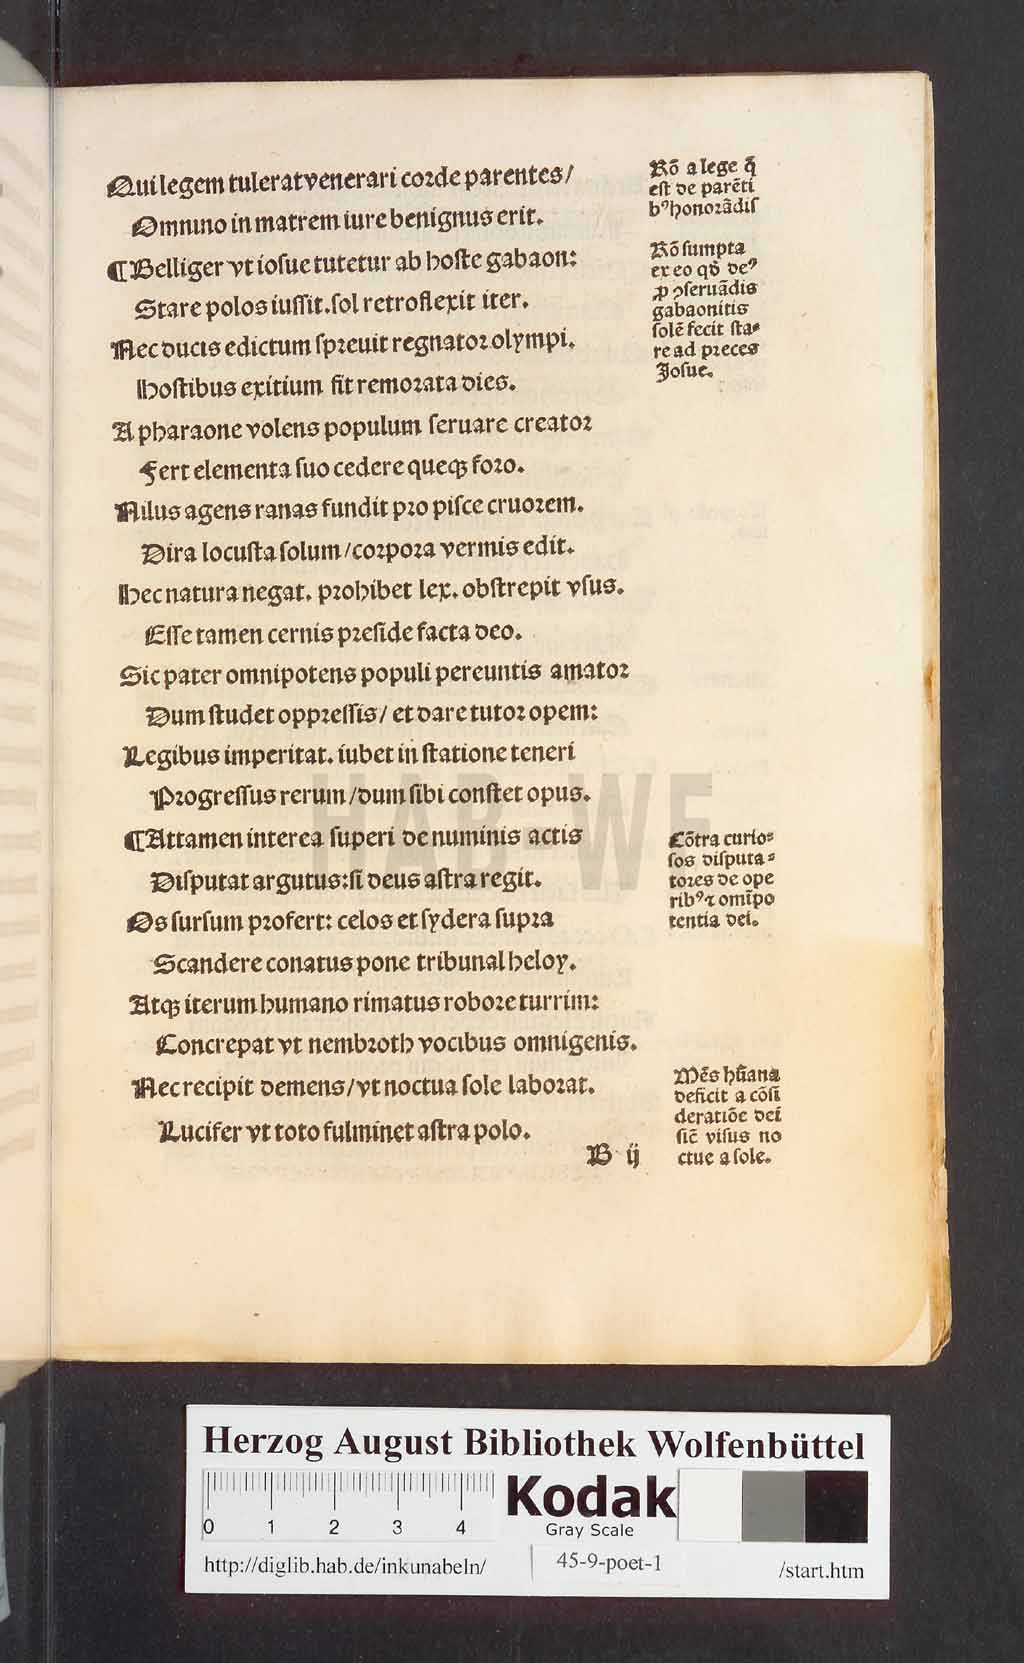 Qui legem tulerat venerari corde parentes/
Omnino in matrem iure benignus erit.
¶Belliger vt iosue tutetur ab hoste gabaon:
Stare polos iussit. sol retroflexit iter.
Nec ducis edictum spreuit regnator olympi.
Hostibus exitium fit remorata dies.
A pharaone volens populum seruare creator
Fert elementa suo cedere queqꝫ foro.
Nilus agens ranas fundit pro pisce cruorem.
Dira locusta solum/corpora vermis edit.
Hec natura negat. prohibet lex. obstrepit vsus.
Esse tamen cernis preside facta deo.
Sic pater omnipotens populi pereuntis amator
Dum studet oppressis/ et dare tutor opem:
Legibus imperitat. iubet in statione teneri
Progressus rerum/dum sibi constet opus.
¶Attamen interea superi de numinis actis
Disputat argutus: si deus astra regit.
Os sursum profert: celos et sydera supra
Scandere conatus pone tribunal heloy.
Atqꝫ iterum humano rimatus robore turrim:
Concrepat vt nembroth vocibus omnigenis.
Nec recipit demens/vt noctua sole laborat.
Lucifer vt toto fulminet astra polo.
B ij
Rō a lege q̄
est de parēti
bꝰ honorādis
Rō sumpta
ex eo qď deꝰ
ꝓ ↄseruādis
gabaonitis
solē fecit sta⸗
re ad preces
Josue.
Cōtra curio⸗
sos disputa⸗
tores de ope
ribꝰ ⁊ omīpo
tentia dei.
Mēs hūana
deficit a cōsi
deratiōe dei
sic̄ visus no
ctue a sole.
HAB-WF
Herzog August Bibliothek Wolfenbüttel
0 1 2 3 4
Kodak
Gray Scale
http://diglib.hab.de/inkunabeln/
45-9-poet-1
/start.htm